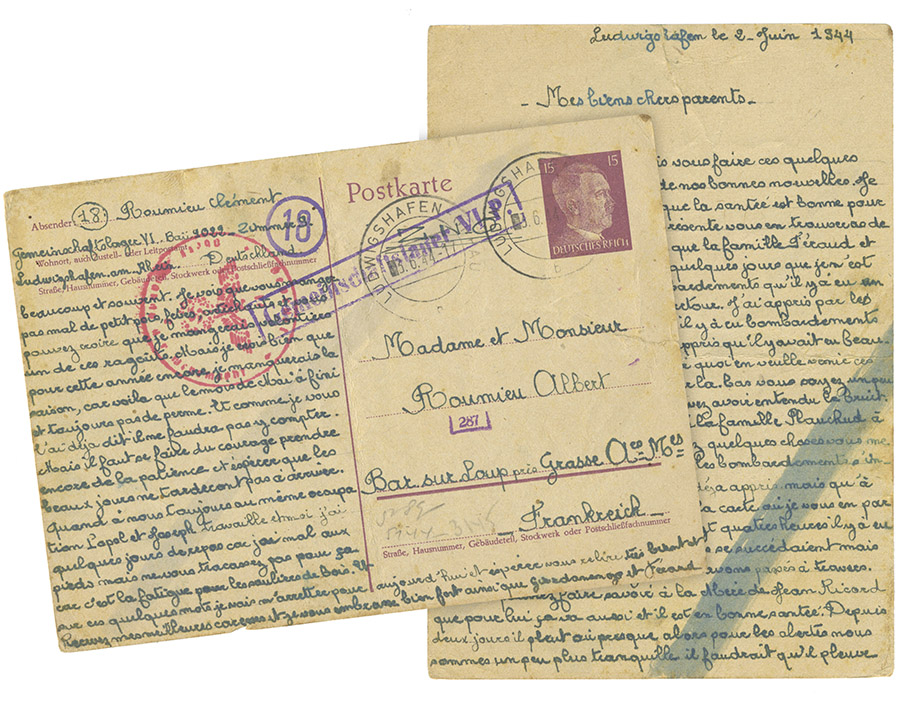 Ludwigshafen le 2 - Juin 1944
- Mes biens chers parents -
is vous faire ces quelques
de nos bonnes nouvelles. Je
que la santée est bonne pour
résente vous en trouveras de
que la famille Féraud et
quelques jours que je n'est
bardements qu'il y à eu en
J'ai appris par les
il y à eu bombardements
appris qu'il y avait eu beau-
quoi en veille
r la bas vous soyez un peu
avoir entendu le bruit
la famille Plauchud à
quelques choses vous me
les bombardements
appris mais qu'à
la carte où je vous en par
quatres heures il y à eu
se succédaient mais
avons passés à travers.
faire savoir à la Mère de Jean Ricard
que pour lui ça va aussi et il est en bonne santée. Depuis
deux jours il pleut ou presque alors pour les alertes nous
sommes un peu plus tranquille il faudrait qu'il pleuve
Postkarte
15 15
DEUTSCHES REICH
LUDWIGSHAFEN
LUDWIGSHAFEN
Gemeinschaftslager VI
18
Absender: 18 Roumieu Clément
Gemeinschaftslager VI - Baü 1022 - Zimmer
Wohnort, auch Zustell- oder Leitpostamt
Ludwigshafen. am. Rhein. Deutschland
Straße, Hausnummer, Gebäudeteil, Stockwerk oder Postschließfachnummer
beaucoup et souvent. Je vois que vous mangez
pas mal de petit pois, fèves, artichauts et vous
pouvez croire que je mangerais volontiers
un de ces ragoûts. Mais je crois bien que
pour cette année encore je manquerais la
saison, car voila que le mois de Mai à fini
et toujours pas de perme. Et comme je vous
l'ai déja dit il me faudra pas y compter.
Mais il faut se faire du courage prendre
encore de la patience et espérer que les
beaux jours ne tarderont pas à arriver.
Quand à nous toujours au même occupa
tion Papol et Joseph travaille et moi j'ai
quelques jours de repos car j'ai mal aux
pieds mais ne vous tracassez pas pour ça
car c'est la fatigue pour les souliers de bois.
sur ces quelques mots je vais m'arretter pour aujourd'hui et espérer vous relire très bientot
Recevez mes meilleures caresses et je vous embrasse bien fort ainsi que
Madame et Monsieur
Roumieu Albert
287
Bar sur Loup près Grasse Aes Mes
Frankreich
Straße, Hausnummer, Gebäudeteil, Stockwerk oder Postschließfachnummer